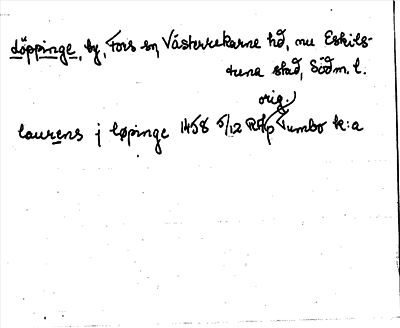 Löppinge, by, Fors sn, Västerrekarne hd, nu Eskils-
tuna stad, Södm. l.
orig.
laurens j løpinge 1458 5/12 RAp Tumbo k:a